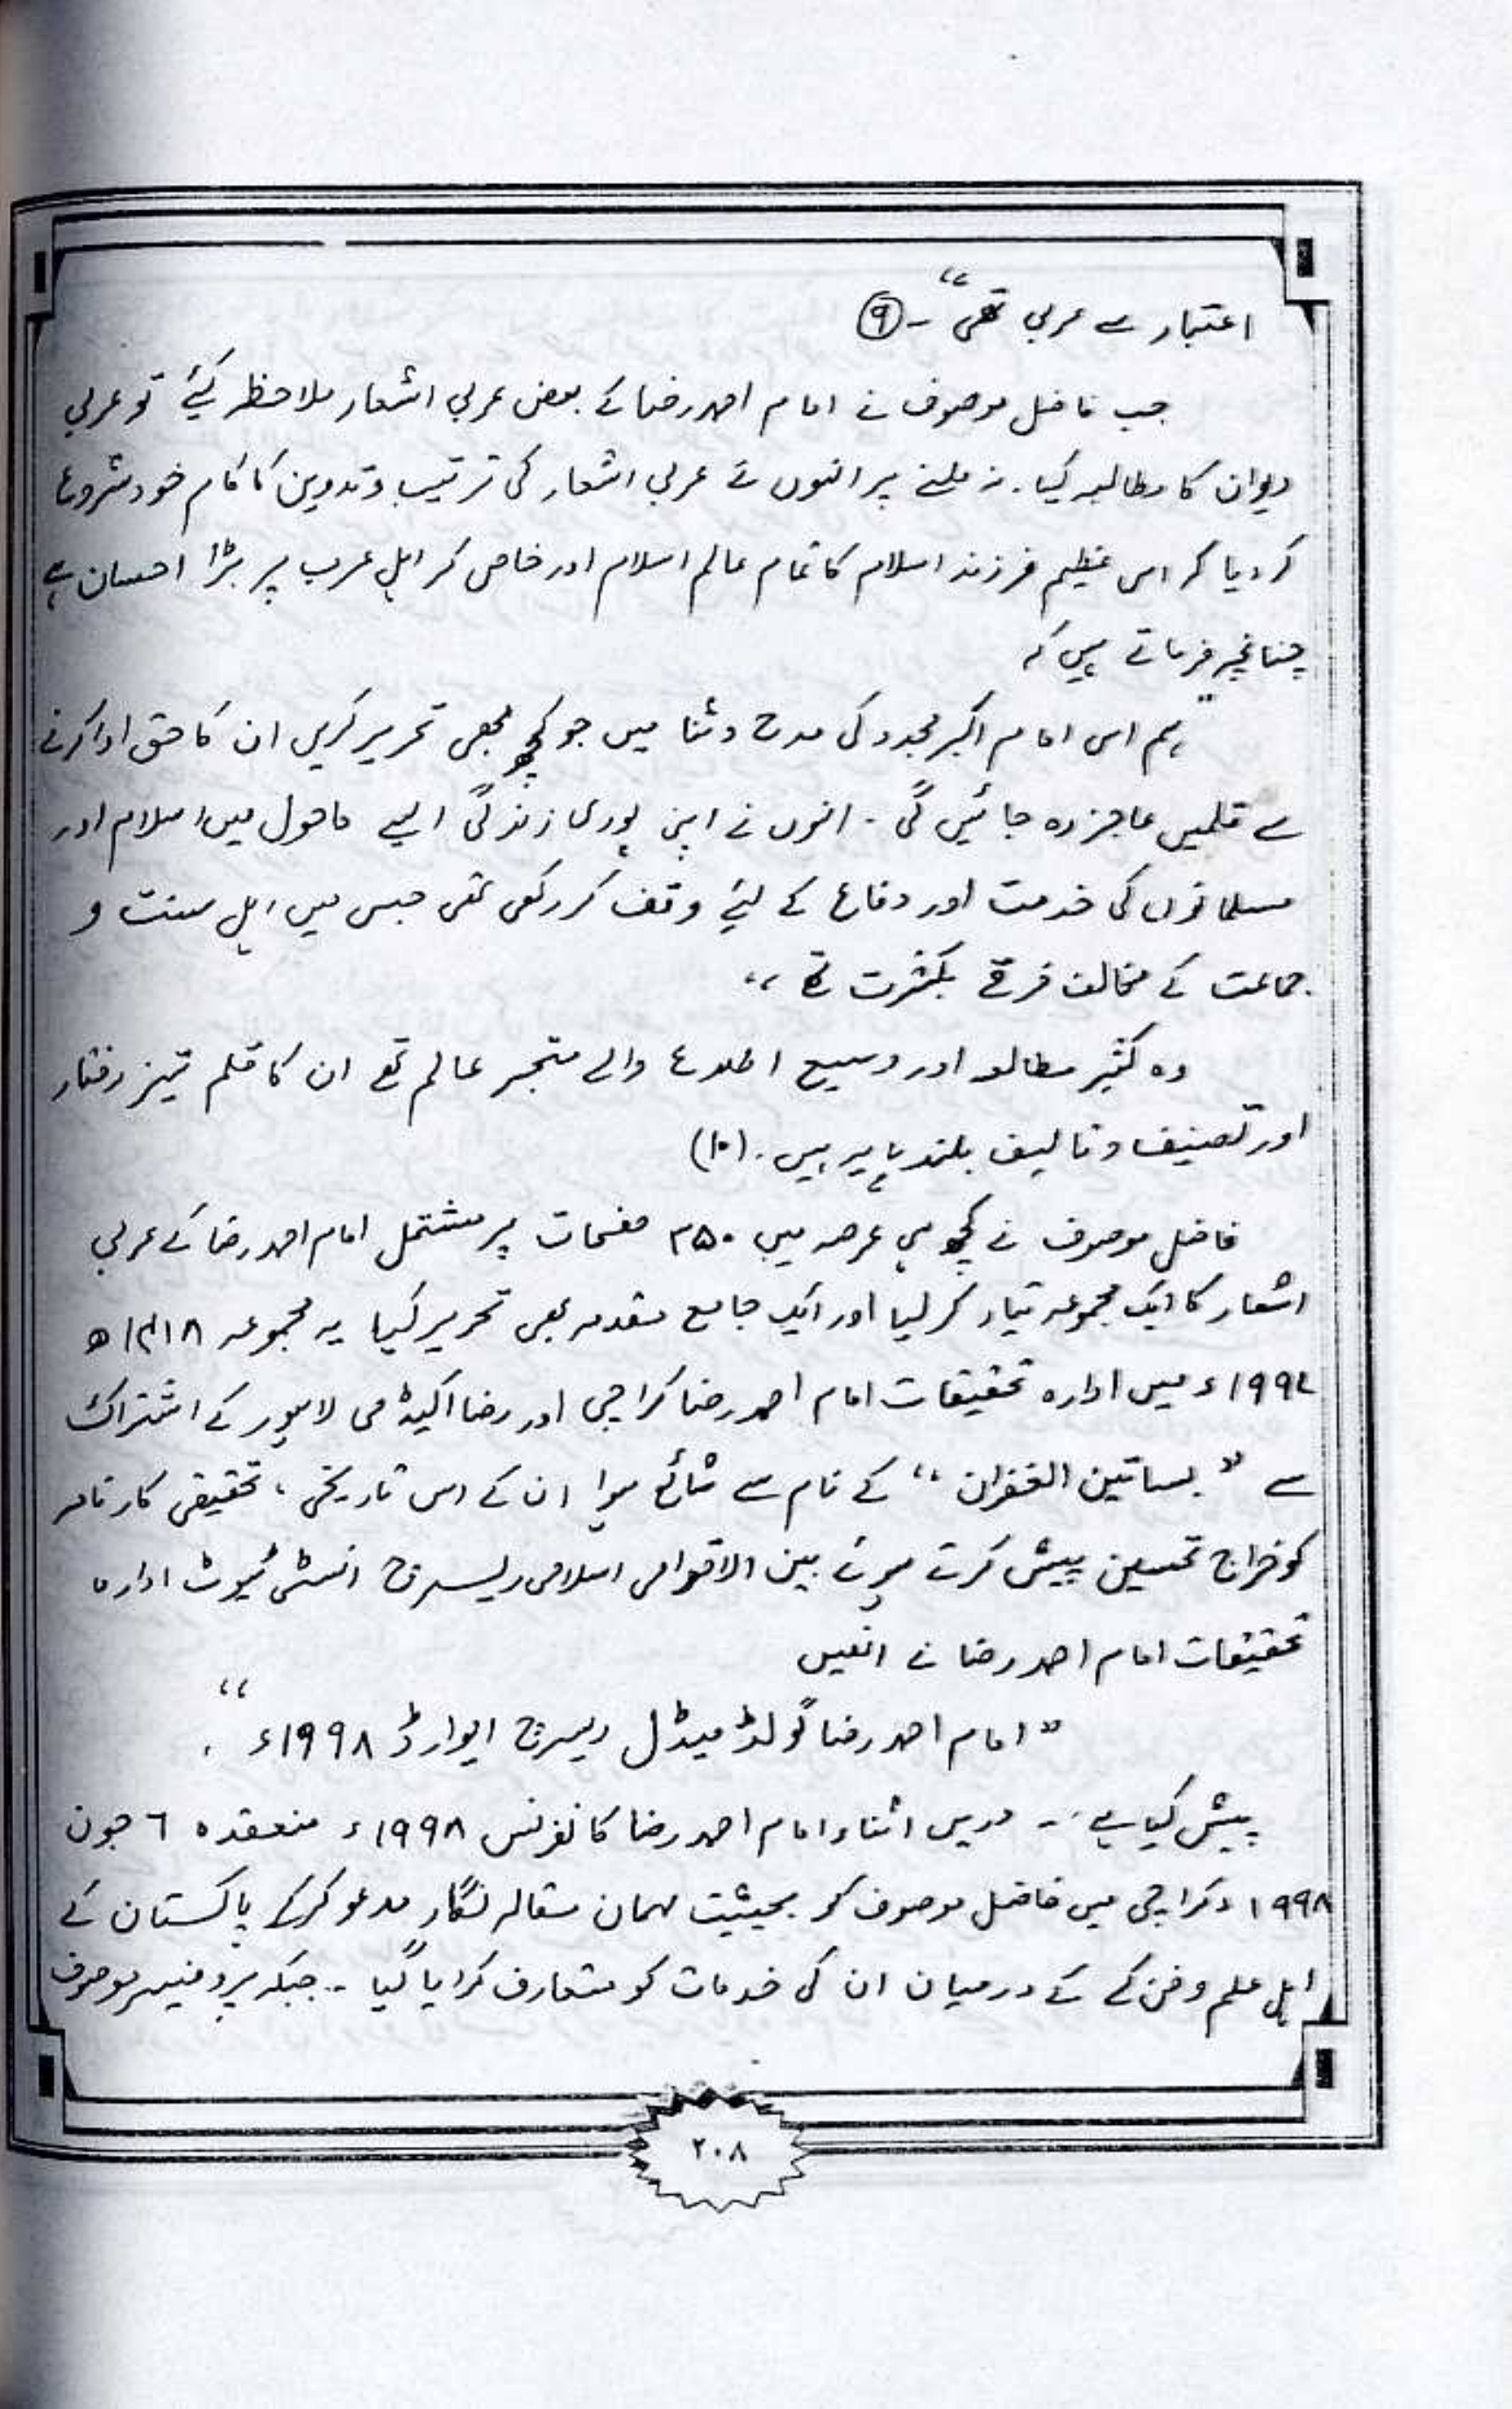 اعتبار سے عربی تھی“۔ ⑨
جب فاضل موصوف نے امام احمد رضا کے بعض عربی اشعار ملاحظہ کیئے تو عربی
دیوان کا مطالبہ کیا۔ نہ ملنے پر انہوں نے عربی اشعار کی ترتیب و تدوین کا کام خود شروع
کر دیا کہ اس عظیم فرزند اسلام کا تمام عالم اسلام اور خاص کر اہل عرب پر بڑا احسان ہے
چنانچہ فرماتے ہیں کہ
”ہم اس امام اکبر مجدد کی مدح و ثنا میں جو کچھ بھی تحریر کریں ان کا حق ادا کرنے
سے قلمیں عاجز رہ جائیں گی۔ انہوں نے اپنی پوری زندگی ایسے ماحول میں اسلام اور
مسلمانوں کی خدمت اور دفاع کے لیئے وقف کر رکھی تھی جس میں اہل سنت و
جماعت کے مخالف فرقے بکثرت تھے“
وہ کثیر مطالعہ اور وسیع اطلاع والے متبحر عالم تھے ان کا قلم تیز رفتار
اور تصنیف و تالیف بلند پایہ ہیں۔ (۱۰)
فاضل موصوف نے کچھ ہی عرصہ میں ۳۵۰ صفحات پر مشتمل امام احمد رضا کے عربی
اشعار کا ایک مجموعہ تیار کر لیا اور ایک جامع مقدمہ بھی تحریر کیا یہ مجموعہ ۱۴۱۸ھ
۱۹۹۷ء میں ادارہ تحقیقات امام احمد رضا کراچی اور رضا اکیڈمی لاہور کے اشتراک
سے ”بساتین الغفران“ کے نام سے شائع ہوا ان کے اس تاریخی، تحقیقی کارنامہ
کو خراج تحسین پیش کرتے ہوئے بین الاقوامی اسلامی ریسرچ انسٹی ٹیوٹ ادارہ
تحقیقات امام احمد رضا نے انھیں
”امام احمد رضا گولڈ میڈل ریسرچ ایوارڈ ۱۹۹۸ء“۔
پیش کیا ہے۔۔ دریں اثناء امام احمد رضا کانفرنس ۱۹۹۸ء منعقدہ ٦ جون
۱۹۹۸ء کراچی میں فاضل موصوف کو بحیثیت مہمان مقالہ نگار مدعو کرکے پاکستان کے
اہل علم و فن کے کے درمیان ان کی خدمات کو متعارف کرایا گیا۔۔ جبکہ پروفیسر موصوف
۲۰۸